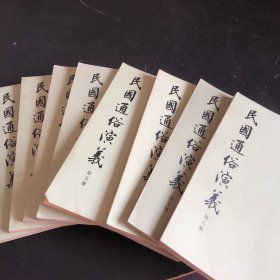 民國通俗演義
民國通俗演義
民國通俗
民國通俗
民國通俗演義
第五册
民國通俗演義
民國通俗演義
民國通俗演義
第八册